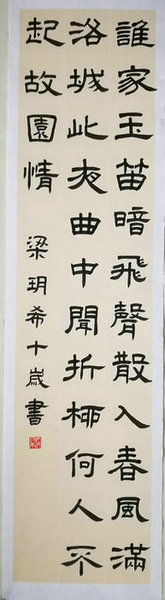 誰家玉笛暗飛聲散入春風滿
洛城此夜曲中聞折柳何人不
起故園情
梁玥希十歲書